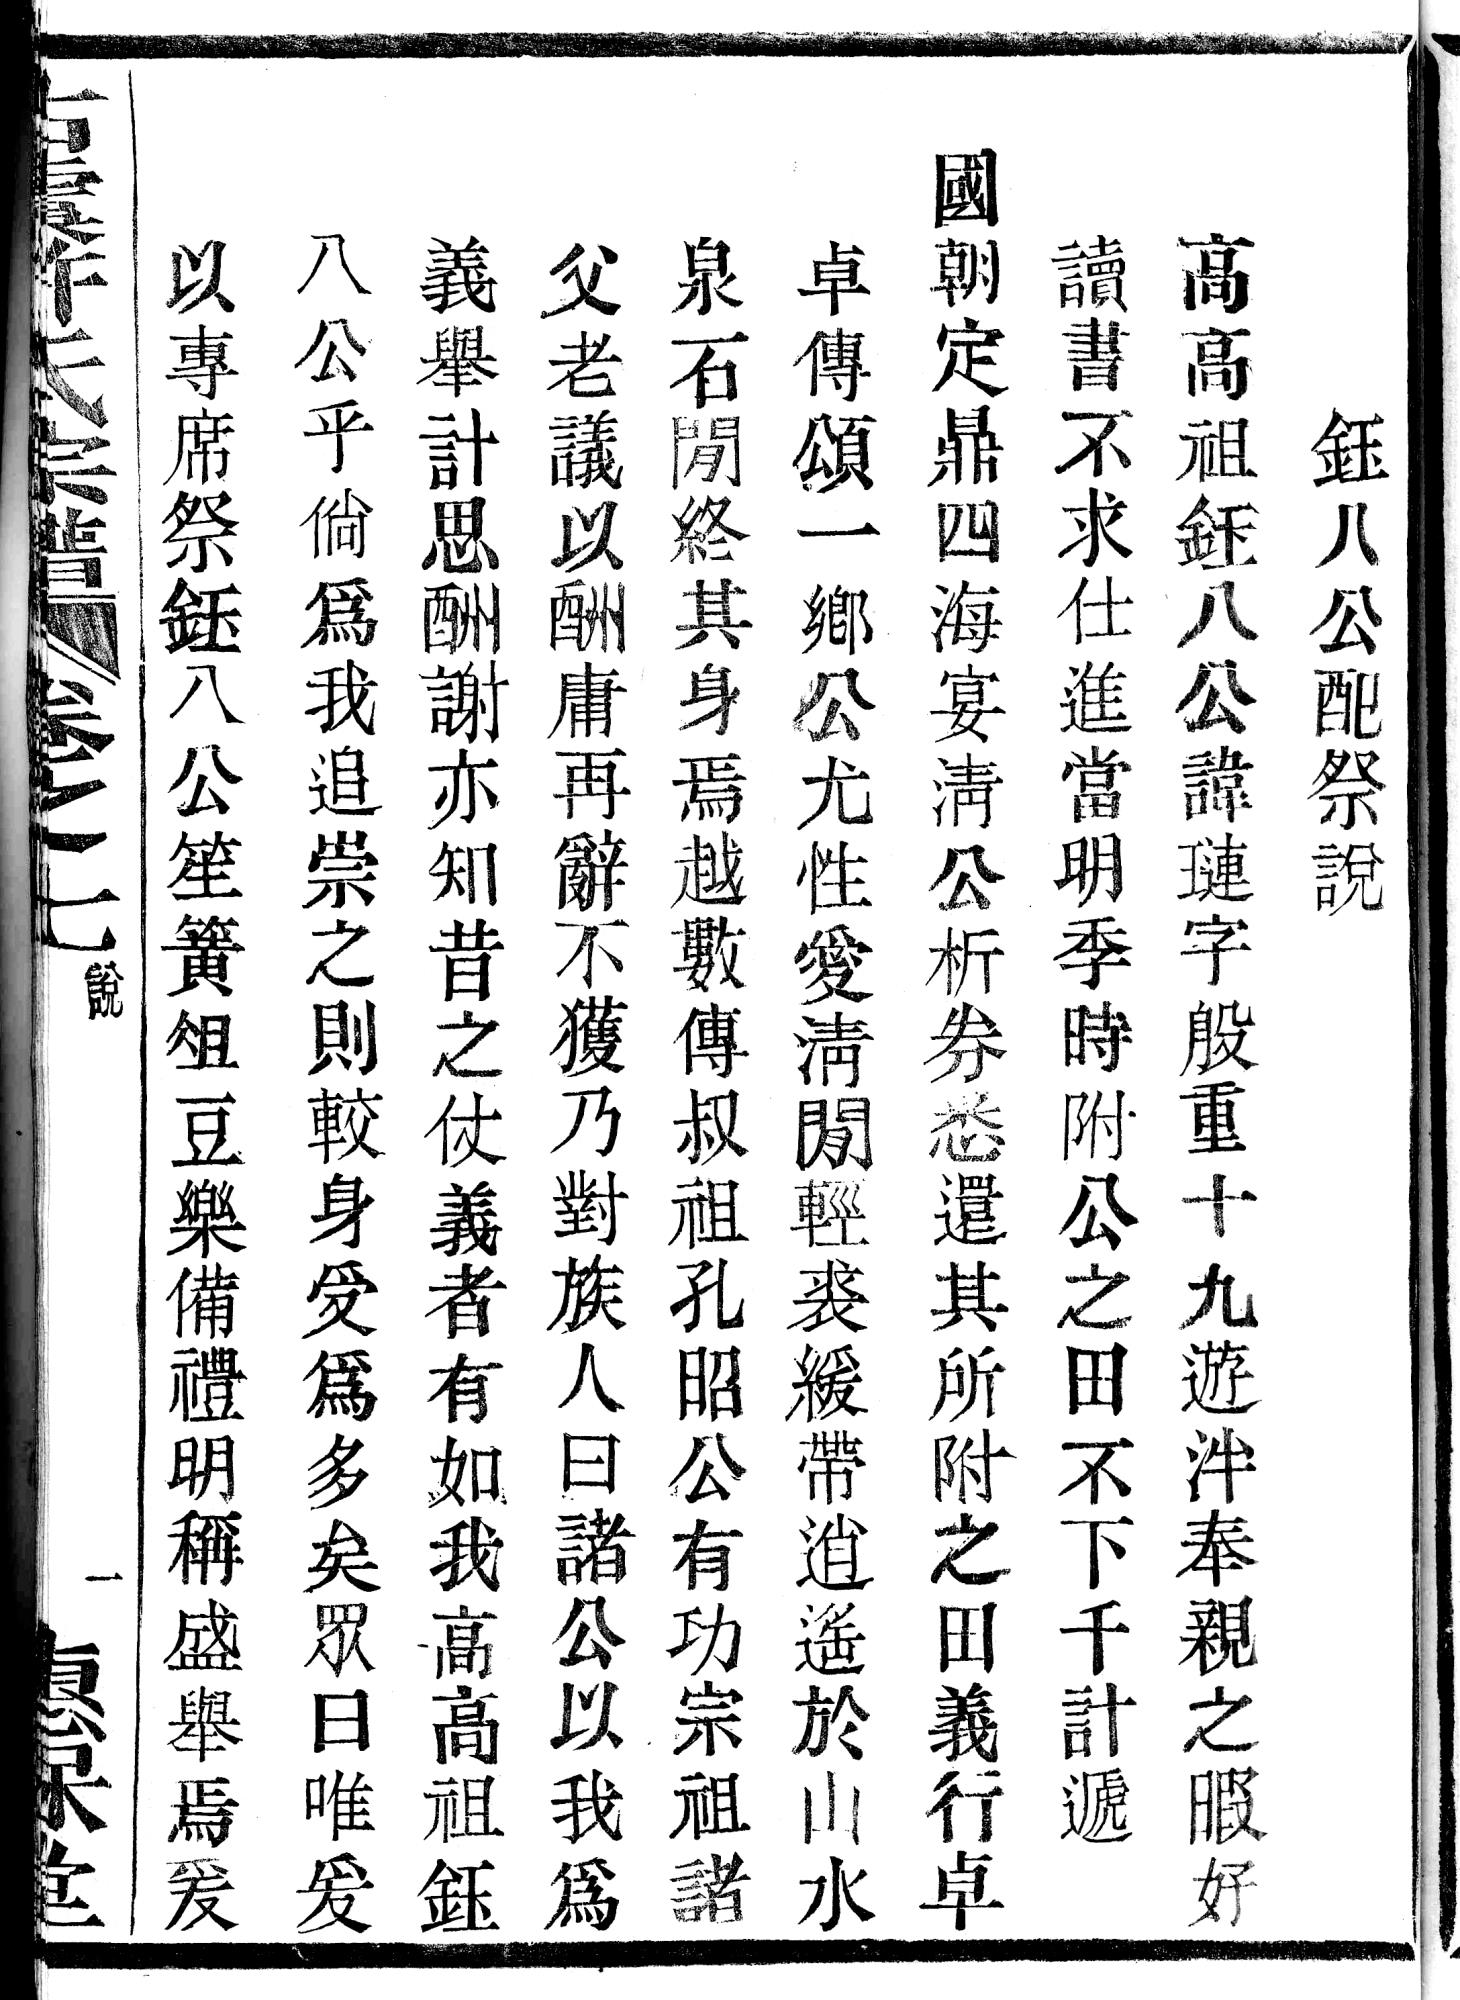 鈺八公配祭說
高高祖鈺八公諱璉字般重十九遊泮奉親之暇好
讀書不求仕進當明季時附公之田不下千計遞
國朝定鼎四海宴淸公析券悉還其所附之田義行卓
卓傳頌一鄉公尤性愛淸閒輕裘緩帶逍遙於山水
泉石閒終其身焉越數傳叔祖孔昭公有功宗祖諸
父老議以酬庸再辭不獲乃對族人曰諸公以我爲
義舉計思酬謝亦知昔之仗義者有如我高高祖鈺
八公乎倘爲我追崇之則較身受爲多矣眾曰唯爰
以專席祭鈺八公笙簧俎豆樂備禮明稱盛舉焉爰
氏宗譜 卷之一 說 一 惠保堂